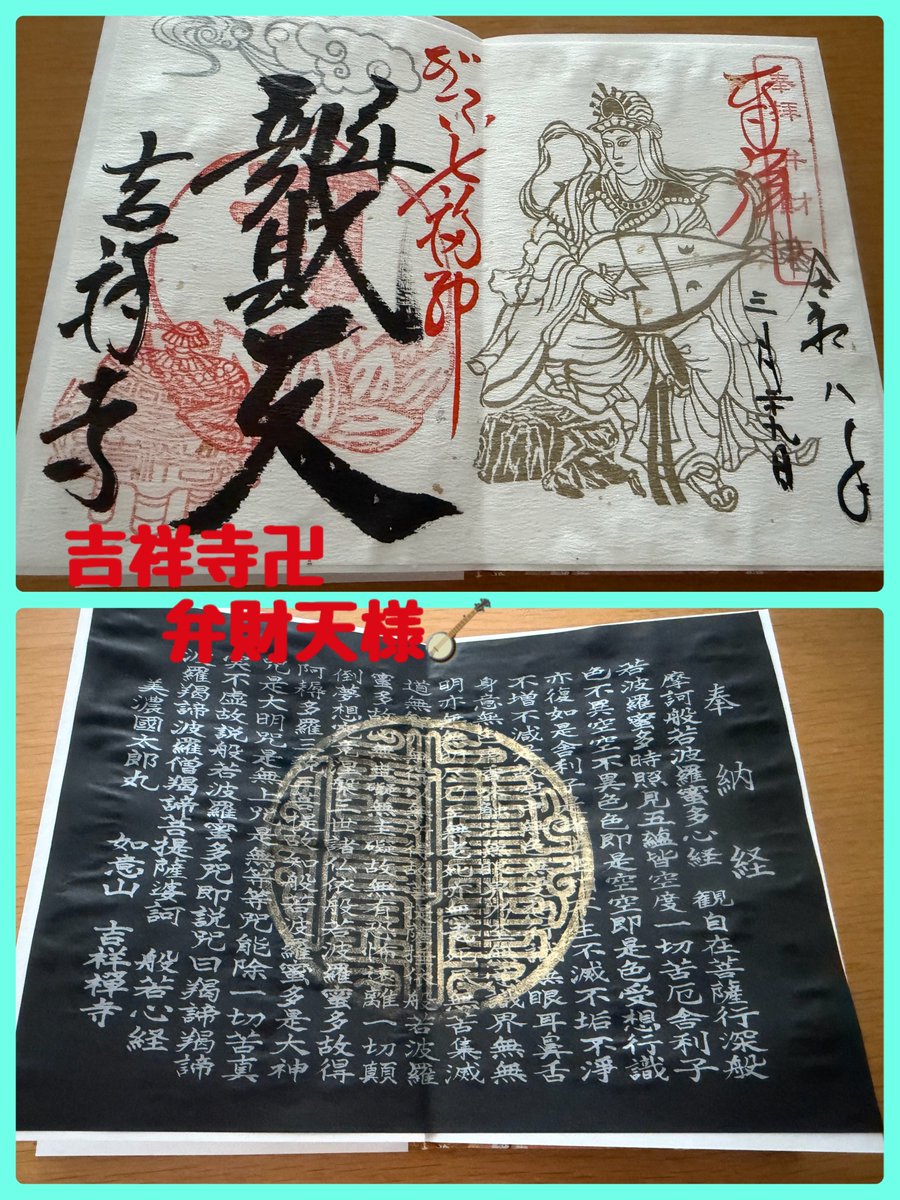 奉拝弁財天
令和八年
ぎふ七福神
辯財天
吉祥寺
吉祥寺卍
弁財天様
奉納経
摩訶般若波羅蜜多心経 観自在菩薩行深般
若波羅蜜多時照見五蘊皆空度一切苦厄舎利子
色不異空空不異色色即是空空即是色受想行識
亦復如是舎利子 生不滅不垢不淨
不増不減 無眼耳鼻舌
身意無 識界無無
明亦 無苦集滅
道無 般若波羅
蜜多故 一切顛
倒夢想 依般若波羅蜜多故得
阿耨多羅三 般若波羅蜜多是大神
咒是大明咒是無上咒是無等等咒能除一切苦真
実不虚故説般若波羅蜜多咒即説咒曰羯諦羯諦
波羅羯諦波羅僧羯諦菩提薩婆訶 般若心経
美濃國太郎丸 如意山 吉祥禅寺